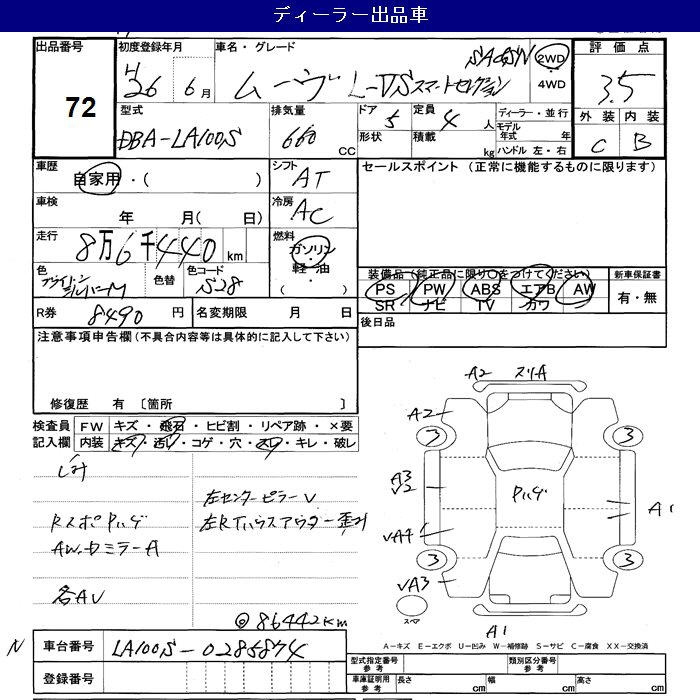 ディーラー出品車
出品番号
72
初度登録年月
H26 6月
車名・グレード
SA GSN
ムーヴ L-VSスマートセレクション
2WD
4WD
評価点
3.5
外装 内装
C B
型式
DBA-LA100S
排気量
660 CC
ドア 5
形状
定員 4 人
積載 kg
ディーラー・並行
モデル年式 年
ハンドル 左・右
車歴
自家用・( )
シフト
AT
車検
年 月( 日)
冷房
AC
走行
8万6千440 km
燃料
ガソリン
軽油
( )
色
シルバーM
色替
色コード
S28
R券 8490 円
名変期限 月 日
セールスポイント (正常に機能するものに限ります)
装備品 (純正品に限り○をつけてください)
新車保証書
PS PW ABS エアB AW
SR ナビ TV カワ
有・無
後日品
注意事項申告欄 (不具合内容等は具体的に記入して下さい)
修復歴 有 〔箇所 〕
検査員記入欄
FW キズ・飛石・ヒビ割・リペア跡・×要
内装 キズ・汚レ・コゲ・穴・スレ・キレ・破レ
シミ
左センターピラーV
RスポPハゲ
左RTハウスアウター歪み
AW・ドミラーA
各AV
@86442km
A2 スリA
A2
3 3
A3
V2
Pハゲ
A1
VA4
3 3
VA3
スペア
A1
A-キズ E-エクボ U-凹み W-補修跡 S-サビ C-腐食 XX-交換済
N
車台番号 LA100S-0285874
登録番号
型式指定番号 参考
類別区分番号 参考
車庫証明用 参考
長さ cm 幅 cm 高さ cm